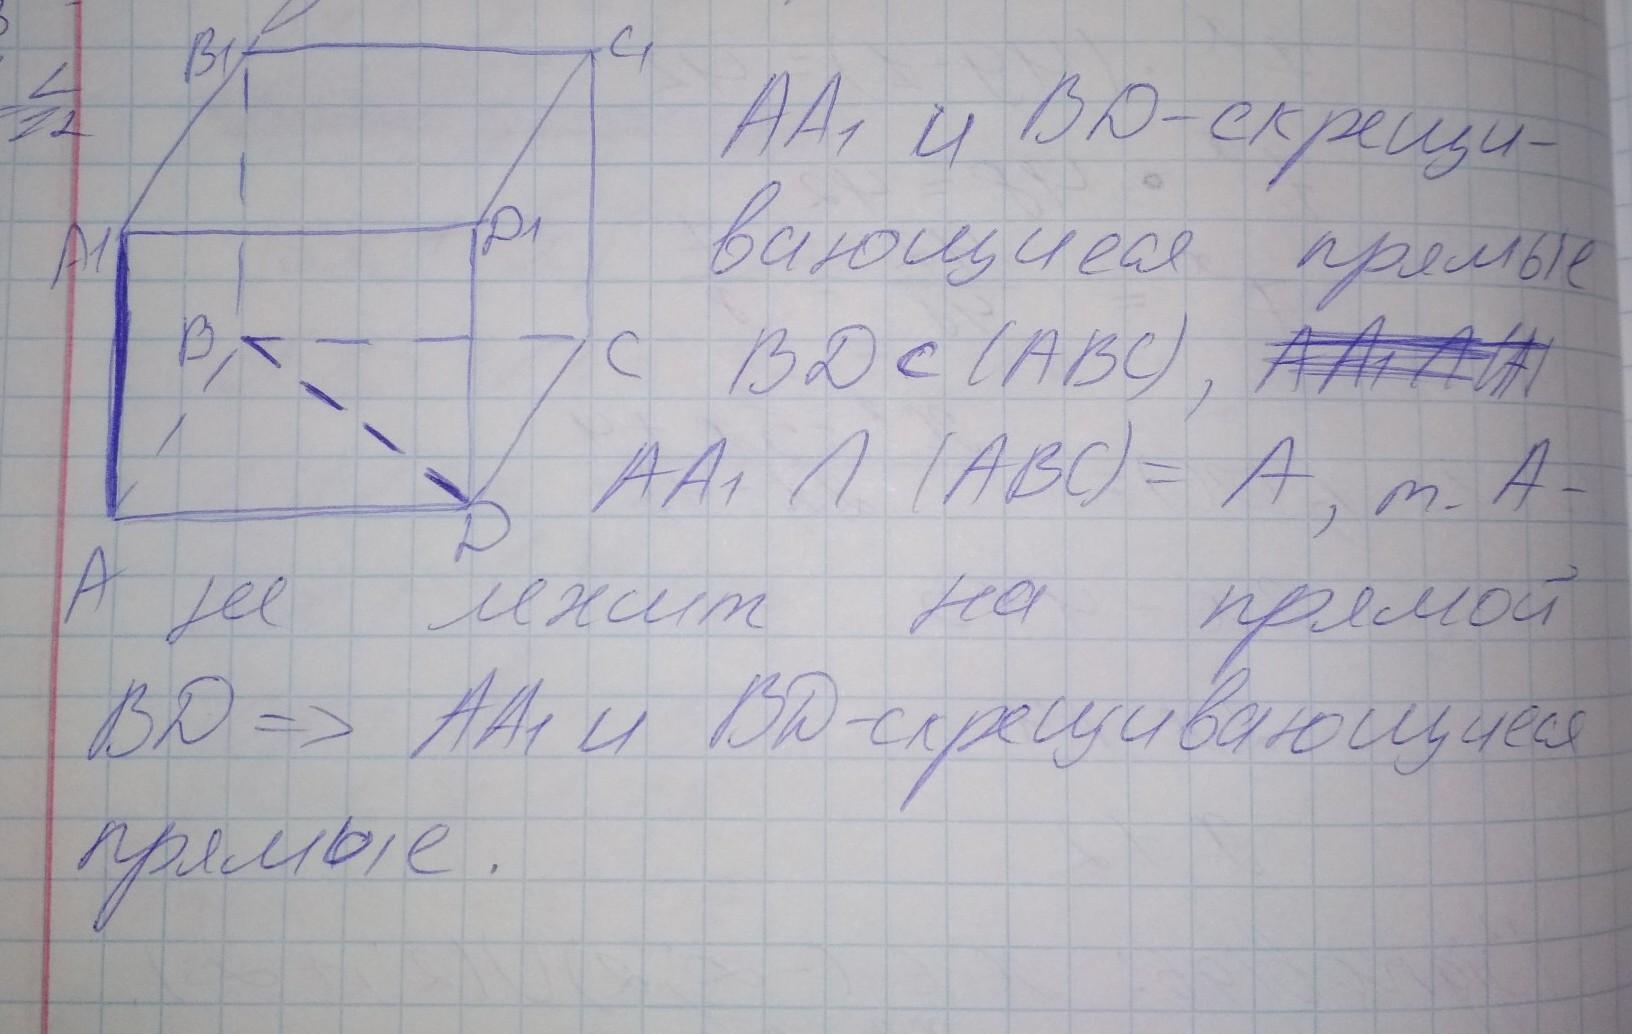 B1
C1
A1
D1
B
C
D
A
AA1 и BD-скрещи-
вающиеся прямые
BD⊂(ABC),
AA1 ∩ (ABC)= A, т. A-
не лежит на прямой
BD => AA1 и BD-скрещивающиеся
прямые.